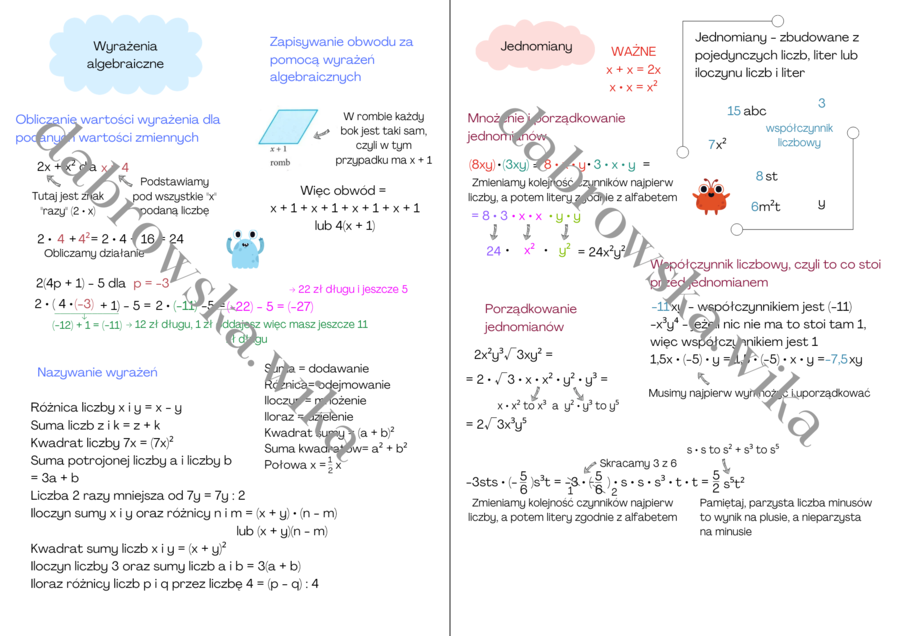 Wyrażenia
algebraiczne
Zapisywanie obwodu za
pomocą wyrażeń
algebraicznych
Obliczanie wartości wyrażenia dla
podanych wartości zmiennych
2x + x² dla x = 4
Tutaj jest znak
"razy" (2 • x)
Podstawiamy
pod wszystkie "x"
podaną liczbę
2 • 4 + 4² = 2 • 4 + 16 = 24
Obliczamy działanie
x + 1
romb
W rombie każdy
bok jest taki sam,
czyli w tym
przypadku ma x + 1
Więc obwód =
x + 1 + x + 1 + x + 1 + x + 1
lub 4(x + 1)
2(4p + 1) – 5 dla p = –3
→ 22 zł długu i jeszcze 5
2 • ( 4 •(–3) + 1) – 5 = 2 • (–11) –5 = (–22) – 5 = (–27)
(–12) + 1 = (–11) → 12 zł długu, 1 zł oddajesz więc masz jeszcze 11
zł długu
Nazywanie wyrażeń
Różnica liczby x i y = x – y
Suma liczb z i k = z + k
Kwadrat liczby 7x = (7x)²
Suma potrojonej liczby a i liczby b
= 3a + b
Liczba 2 razy mniejsza od 7y = 7y : 2
Iloczyn sumy x i y oraz różnicy n i m = (x + y) • (n – m)
lub (x + y)(n – m)
Kwadrat sumy liczb x i y = (x + y)²
Iloczyn liczby 3 oraz sumy liczb a i b = 3(a + b)
Iloraz różnicy liczb p i q przez liczbę 4 = (p – q) : 4
Suma = dodawanie
Różnica= odejmowanie
Iloczyn = mnożenie
Iloraz = dzielenie
Kwadrat sumy = (a + b)²
Suma kwadratów= a² + b²
Połowa x = ½ x
Jednomiany
WAŻNE
x + x = 2x
x • x = x²
Jednomiany – zbudowane z
pojedynczych liczb, liter lub
iloczynu liczb i liter
15 abc
3
współczynnik
liczbowy
7x²
8 st
6m²t
y
Mnożenie i porządkowanie
jednomianów
(8xy) • (3xy) = 8 • x • y • 3 • x • y =
Zmieniamy kolejność czynników najpierw
liczby, a potem litery zgodnie z alfabetem
= 8 • 3 • x • x • y • y
24 • x² • y² = 24x²y²
Współczynnik liczbowy, czyli to co stoi
przed jednomianem
–11xy – współczynnikiem jest (–11)
–x³y⁴ – jeżeli nic nie ma to stoi tam 1,
więc współczynnikiem jest 1
1,5x • (–5) • y = 1,5 • (–5) • x • y =–7,5 xy
Musimy najpierw wymnożyć i uporządkować
Porządkowanie
jednomianów
2x²y³√3xy² =
= 2 • √3 • x • x² • y² • y³ =
x • x² to x³ a y² • y³ to y⁵
= 2√3x³y⁵
s • s to s² + s³ to s⁵
Skracamy 3 z 6
–3sts • (–5/6)s³t = –3 • (–5/6) • s • s • s³ • t • t = 5/2 s⁵t²
1 2
Zmieniamy kolejność czynników najpierw
liczby, a potem litery zgodnie z alfabetem
Pamiętaj, parzysta liczba minusów
to wynik na plusie, a nieparzysta
na minusie
dabrowska.wika
dabrowska.wika